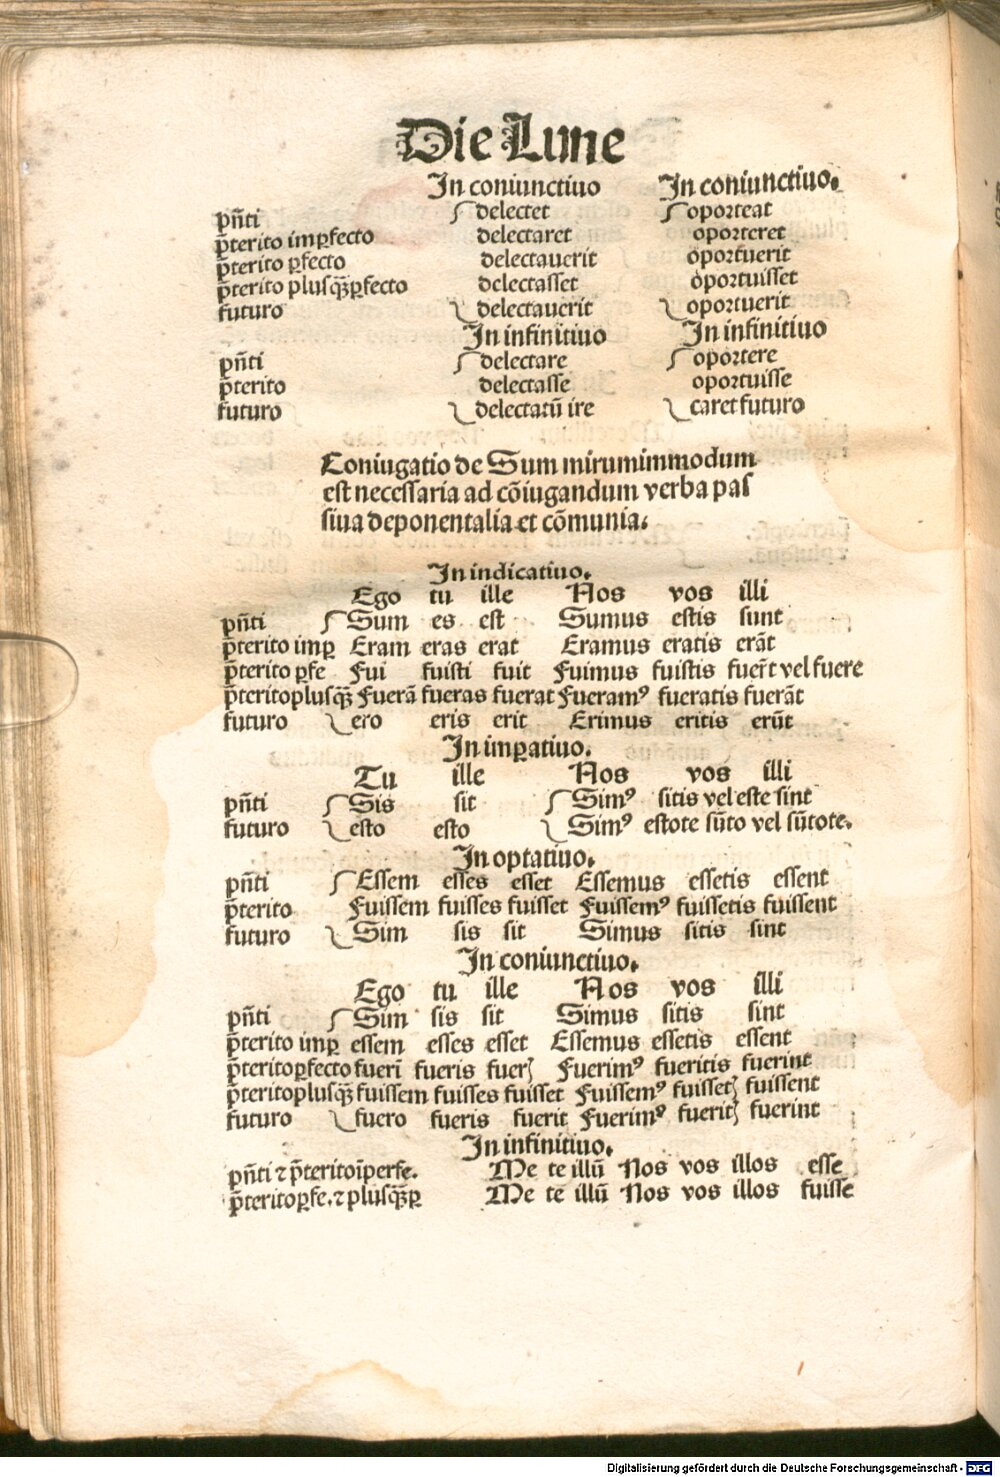 Die Lune
In coniunctiuo In coniunctiuo.
pñti delectet oporteat
p̄terito imꝑfecto delectaret oporteret
p̄terito ꝑfecto delectauerit oportuerit
p̄terito plusq̄ꝑfecto delectasset oportuisset
futuro delectauerit oportuerit
In infinitiuo In infinitiuo
pñti delectare oportere
p̄terito delectasse oportuisse
futuro delectatū ire caret futuro
Coniugatio de Sum mirumimmodum
est necessaria ad cōiugandum verba pas
siua deponentalia et cōmunia.
In indicatiuo.
Ego tu ille Nos vos illi
pñti Sum es est Sumus estis sunt
p̄terito imꝑ Eram eras erat Eramus eratis erāt
p̄terito ꝑfe Fui fuisti fuit Fuimus fuistis fuer̄t vel fuere
p̄teritoplusq̄ Fuerā fueras fuerat Fueramꝰ fueratis fuerāt
futuro ero eris erit Erimus eritis erūt
In imꝑatiuo.
Tu ille Nos vos illi
pñti Sis sit Simꝰ sitis vel este sint
futuro esto esto Simꝰ estote sūto vel sūtote.
In optatiuo.
pñti Essem esses esset Essemus essetis essent
p̄terito Fuissem fuisses fuisset Fuissemꝰ fuissetis fuissent
futuro Sim sis sit Simus sitis sint
In coniunctiuo.
Ego tu ille Nos vos illi
pñti Sim sis sit Simus sitis sint
p̄terito imꝑ essem esses esset Essemus essetis essent
p̄teritoꝑfecto fueri fueris fuerꝭ Fuerimꝰ fueritis fuerint
p̄teritoplusq̄ fuissem fuisses fuisset Fuissemꝰ fuissetꝭ fuissent
futuro fuero fueris fuerit Fuerimꝰ fueritꝭ fuerint
In infinitiuo.
pñti ⁊ p̄teritoīperfe. Me te illū Nos vos illos esse
p̄teritoꝑfe. ⁊ plusq̄ꝑ Me te illū Nos vos illos fuisse
Digitalisierung gefördert durch die Deutsche Forschungsgemeinschaft - DFG